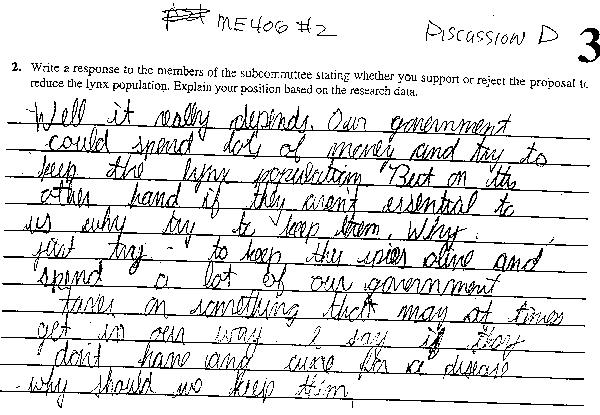 ME406 #2
Discussion D
3
2. Write a response to the members of the subcommittee stating whether you support or reject the proposal to
reduce the lynx population. Explain your position based on the research data.
Well it really depends. Our government
could spend lots of money and try to
keep the lynx population. But on the
other hand if they arent essential to
us why try to keep them. Why
just try - to keep the spies alive and
spend a lot of our government
taxes on something that may at times
get in our way. I say if they
don't have any cure for a disease
why should we keep them